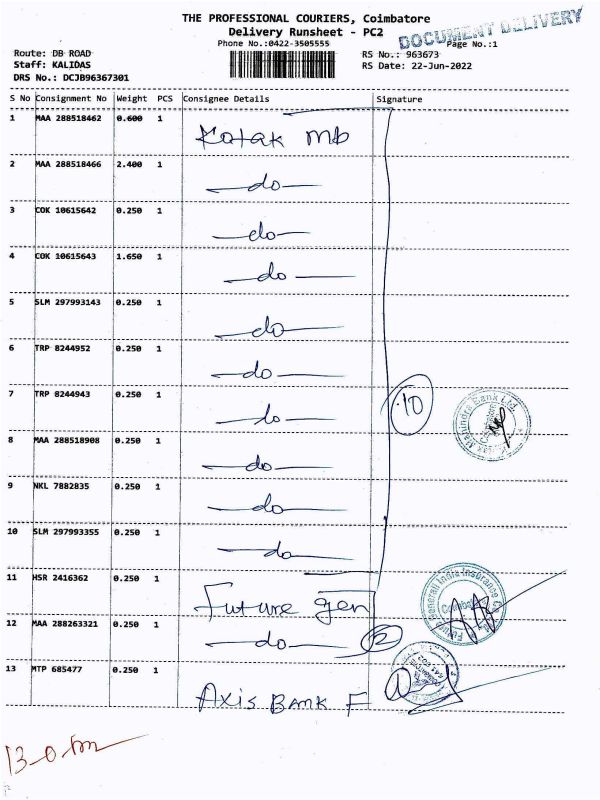 THE PROFESSIONAL COURIERS, Coimbatore
Delivery Runsheet - PC2
DOCUMENT DELIVERY
Phone No.:0422-3505555
Page No.:1
Route: DB ROAD
RS No.: 963673
Staff: KALIDAS
RS Date: 22-Jun-2022
DRS No.: DCJB96367301
S No Consignment No Weight PCS Consignee Details Signature
1 MAA 288518462 0.600 1 Kotak mb
2 MAA 288518466 2.400 1 -do-
3 COK 10615642 0.250 1 -do-
4 COK 10615643 1.650 1 -do-
5 SLM 297993143 0.250 1 -do-
6 TRP 8244952 0.250 1 -do-
7 TRP 8244943 0.250 1 -do- 10
8 MAA 288518908 0.250 1 -do-
9 NKL 7882835 0.250 1 -do-
10 SLM 297993355 0.250 1 -do-
11 HSR 2416362 0.250 1 Future gen
12 MAA 288263321 0.250 1 -do- 2
13 MTP 685477 0.250 1 Axis BANK F
Kotak Mahindra Bank Ltd.
Future Generali India Insurance Co